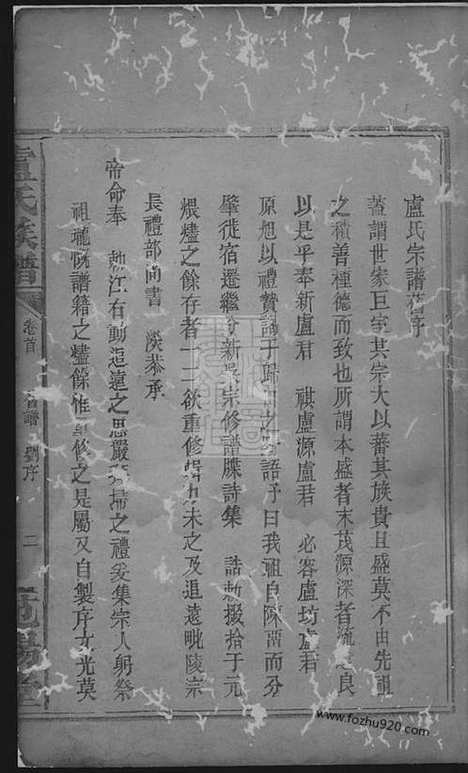 盧氏宗譜舊序
蓋謂世家巨室其宗大以蕃其族貴且盛莫不由先祖
之積善種德而致也所謂本盛者末茂源深者流 良
以是乎奉新盧君 祺盧源盧君 必容盧坊盧君
原旭以禮贄 予歸 之 語予曰我祖自陳畱而分
肇徙宿遷繼分新吳宗修譜牒詩集 誥勅掇拾于元
煨燼之餘存者一二欲重修輯 未之及追遠毗陵宗
長禮部尚書 淡恭承
帝命奉 勅江右動追遠之思嚴 掃之禮爰集宗人躬祭
祖 譜籍之燼餘惟 修之是屬又自製序文光莫
盧氏族譜
卷首 舊譜 劉序
二